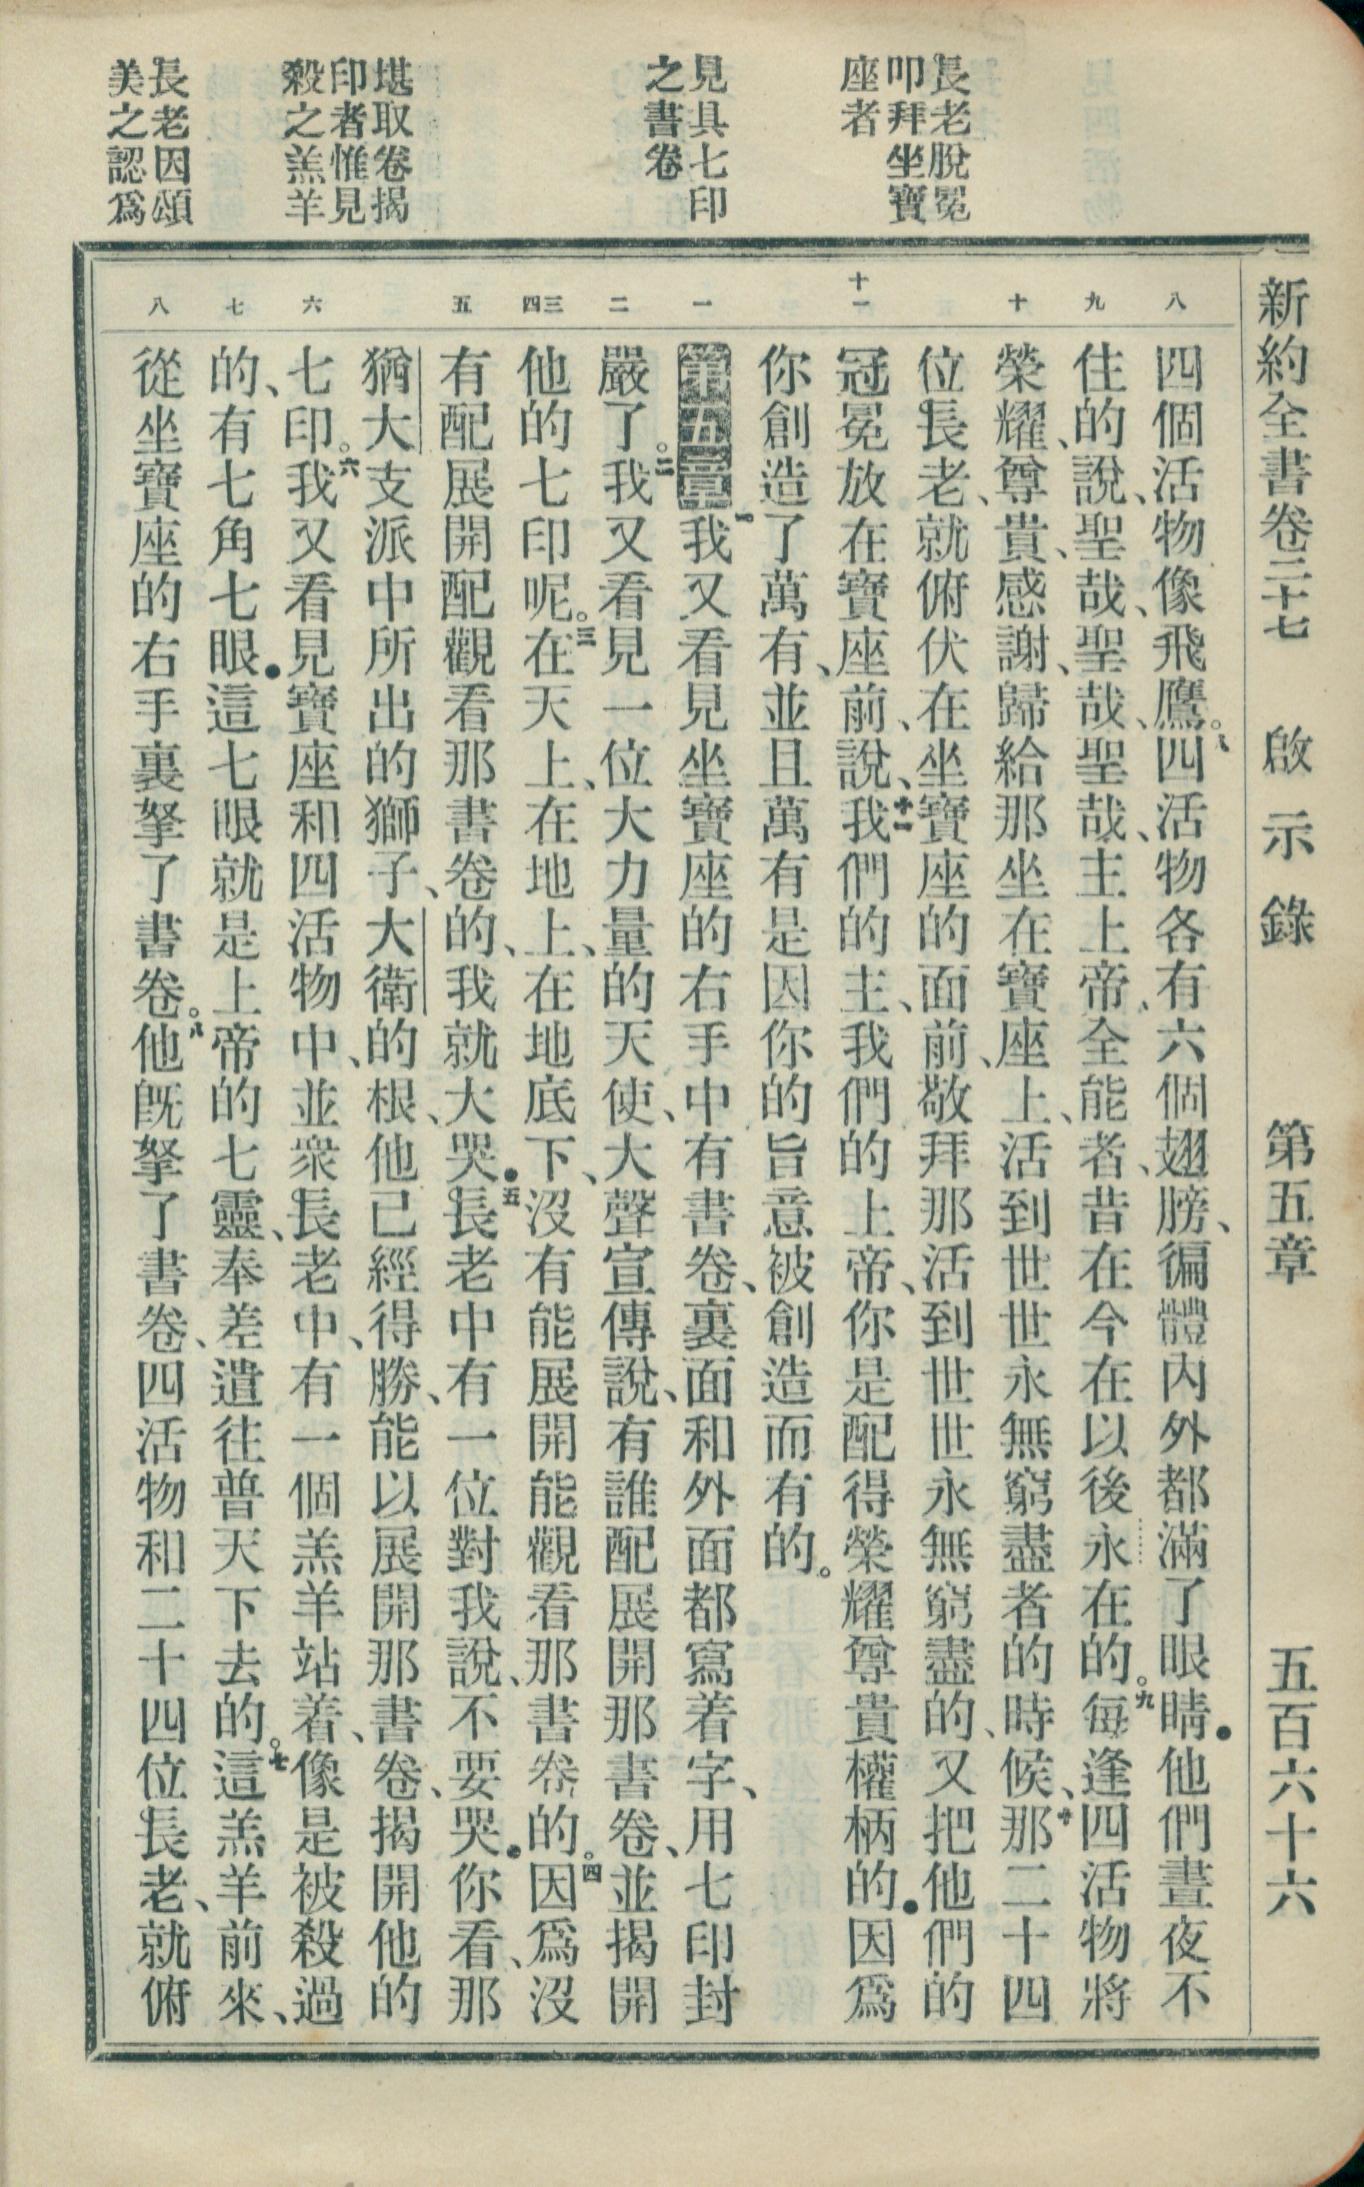 新約全書卷二十七　啟示錄　第五章　五百六十六
長老脫冕
叩拜坐寶
座者
見具七印
之書卷
堪取卷揭
印者惟見
殺之羔羊
長老因頌
美之認爲
八 九 十 十一 一 二 三 四 五 六 七 八
四個活物像飛鷹。八四活物各有六個翅膀、徧體內外都滿了眼睛．他們晝夜不
住的說、聖哉、聖哉、聖哉、主上帝、全能者、昔在今在以後永在的。九每逢四活物將
榮耀、尊貴、感謝、歸給那坐在寶座上、活到世世永無窮盡者的時候、十那二十四
位長老、就俯伏在坐寶座的面前、敬拜那活到世世永無窮盡的、又把他們的
冠冕放在寶座前、說、十一我們的主、我們的上帝、你是配得榮耀尊貴權柄的．因爲
你創造了萬有、並且萬有是因你的旨意被創造而有的。
第五章一我又看見坐寶座的右手中有書卷、裏面和外面都寫着字、用七印封
嚴了。二我又看見一位大力量的天使、大聲宣傳說、有誰配展開那書卷、並揭開
他的七印呢。三在天上、在地上、在地底下、沒有能展開能觀看那書卷的。四因爲沒
有配展開配觀看那書卷的、我就大哭．五長老中有一位對我說、不要哭．你看、那
猶大支派中所出的獅子、大衛的根、他已經得勝、能以展開那書卷、揭開他的
七印。六我又看見寶座和四活物中、並衆長老中、有一個羔羊站着、像是被殺過
的、有七角七眼．這七眼就是上帝的七靈、奉差遣往普天下去的。七這羔羊前來、
從坐寶座的右手裏拏了書卷。八他旣拏了書卷、四活物和二十四位長老、就俯